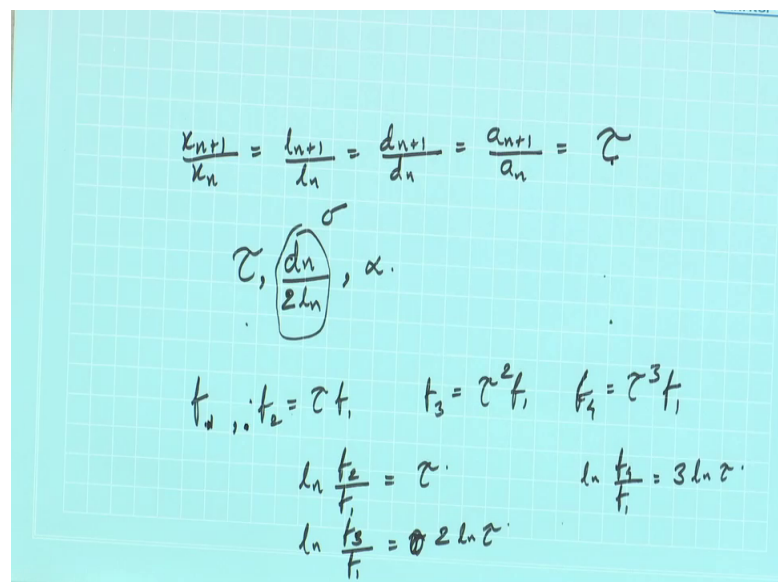 x_{n+1}/x_n = l_{n+1}/l_n = d_{n+1}/d_n = a_{n+1}/a_n = τ
σ
τ, d_n/2l_n, α.
f_1, f_2 = τ f_1 f_3 = τ^2 f_1 f_4 = τ^3 f_1
ln f_2/f_1 = τ. ln f_4/f_1 = 3 ln τ.
ln f_3/f_1 = 2 ln τ.